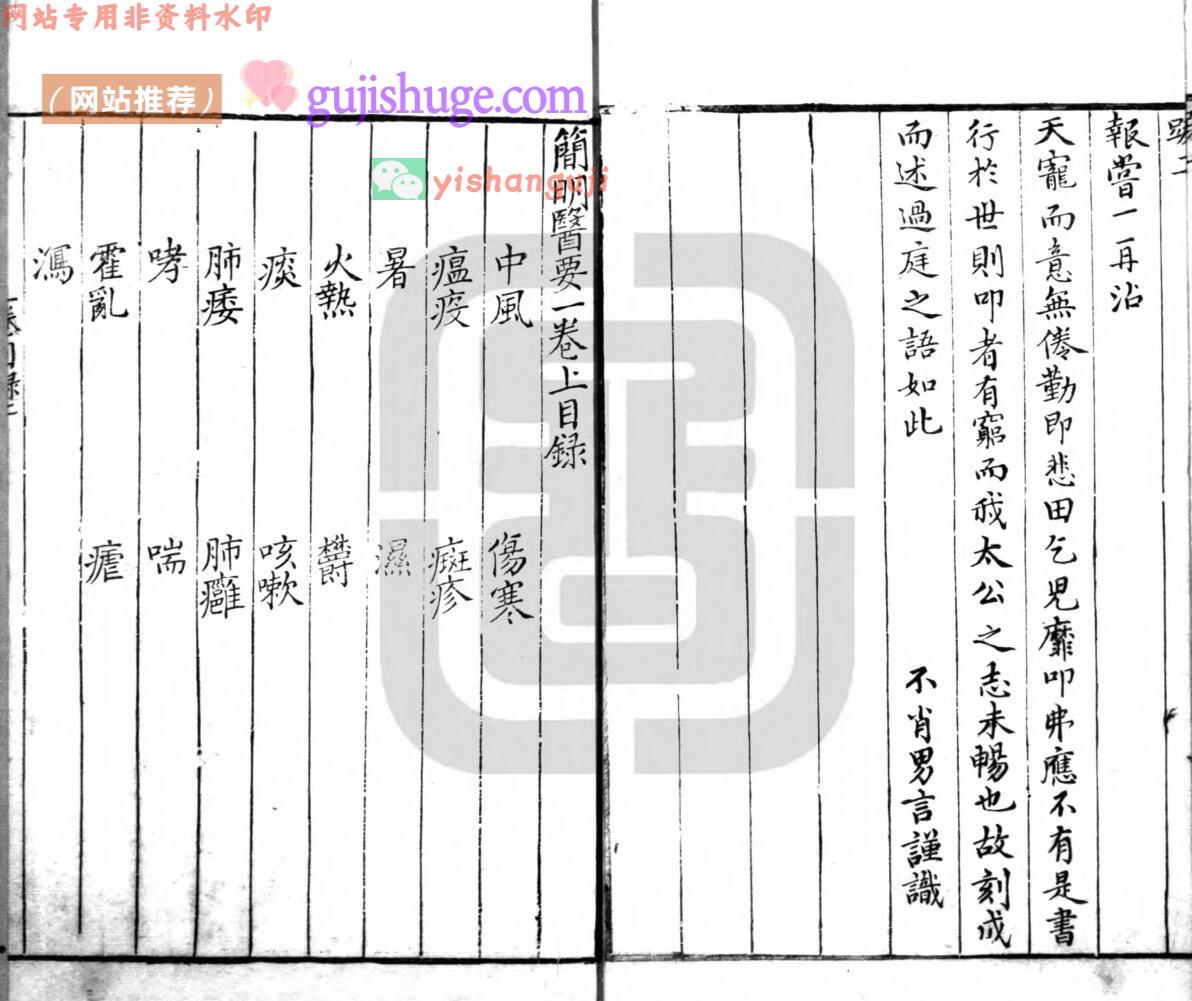 网站专用非资料水印
（网站推荐）
gujishuge.com
yishanguji
報嘗一再沾
天寵而意無倦勤即悲田乞児靡叩弗應不有是書
行於世則叩者有窮而我太公之志未暢也故刻成
而述過庭之語如此
不肖男言謹識
簡明醫要一卷上目録
中風
傷寒
瘟疫
癍疹
暑
濕
火熱
欝
痰
咳嗽
肺痿
肺癰
哮
喘
霍亂
瘧
瀉